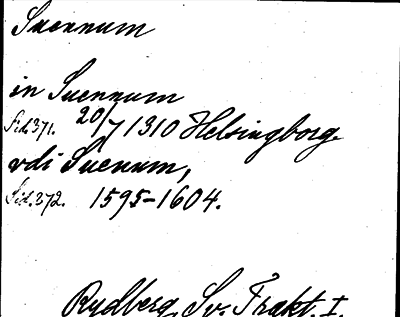 Suennum
in Suennum
Sid. 371. 20/7 1310 Helsingborg.
vdi Suenum,
Sid. 272. 1595-1604.
Rydberg, Sv. Trakt. I.